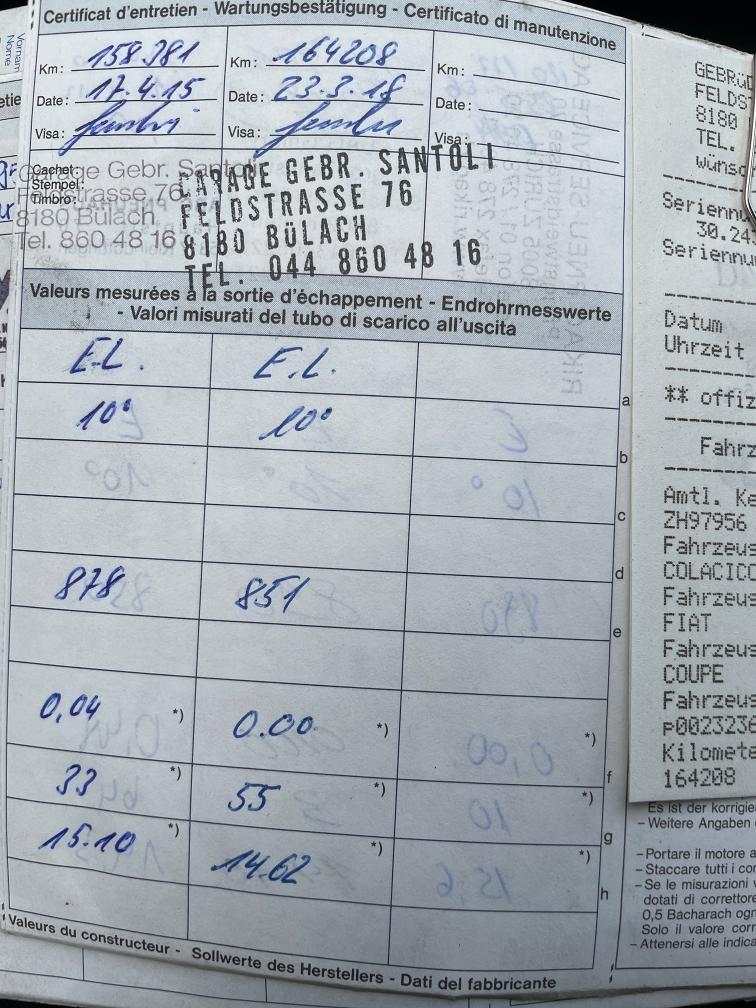 Certificat d'entretien - Wartungsbestätigung - Certificato di manutenzione
Km: 158.381 Km: 164208 Km:
Date: 17.4.15 Date: 23.3.18 Date:
Visa: Visa: Visa:
Cachet:
Stempel:
Timbro:
Garage Gebr. Santoli
8180 Bülach
Tel. 860 48 16
GARAGE GEBR. SANTOLI
FELDSTRASSE 76
8180 BÜLACH
TEL. 044 860 48 16
Valeurs mesurées à la sortie d'échappement - Endrohrmesswerte
- Valori misurati del tubo di scarico all'uscita
E.L. E.L. a
10° 10° b
c
d
878 851 e
0,04 *) 0.00 *) *) f
33 *) 55 *) *) g
15.10 *) 14.62 *) *) h
Valeurs du constructeur - Sollwerte des Herstellers - Dati del fabbricante
8180
TEL.
Seriennu
30.24
Seriennu
Datum
Uhrzeit
** offiz
Fahrz
Amtl. Ke
ZH97956
Fahrzeus
COLACICC
Fahrzeus
FIAT
Fahrzeus
COUPE
Fahrzeus
P0023236
Kilomete
164208
Es ist der korrigie
- Weitere Angaben
- Portare il motore a
- Staccare tutti i co
- Se le misurazioni v
dotati di correttore
0,5 Bacharach ogn
Solo il valore corr
- Attenersi alle indica